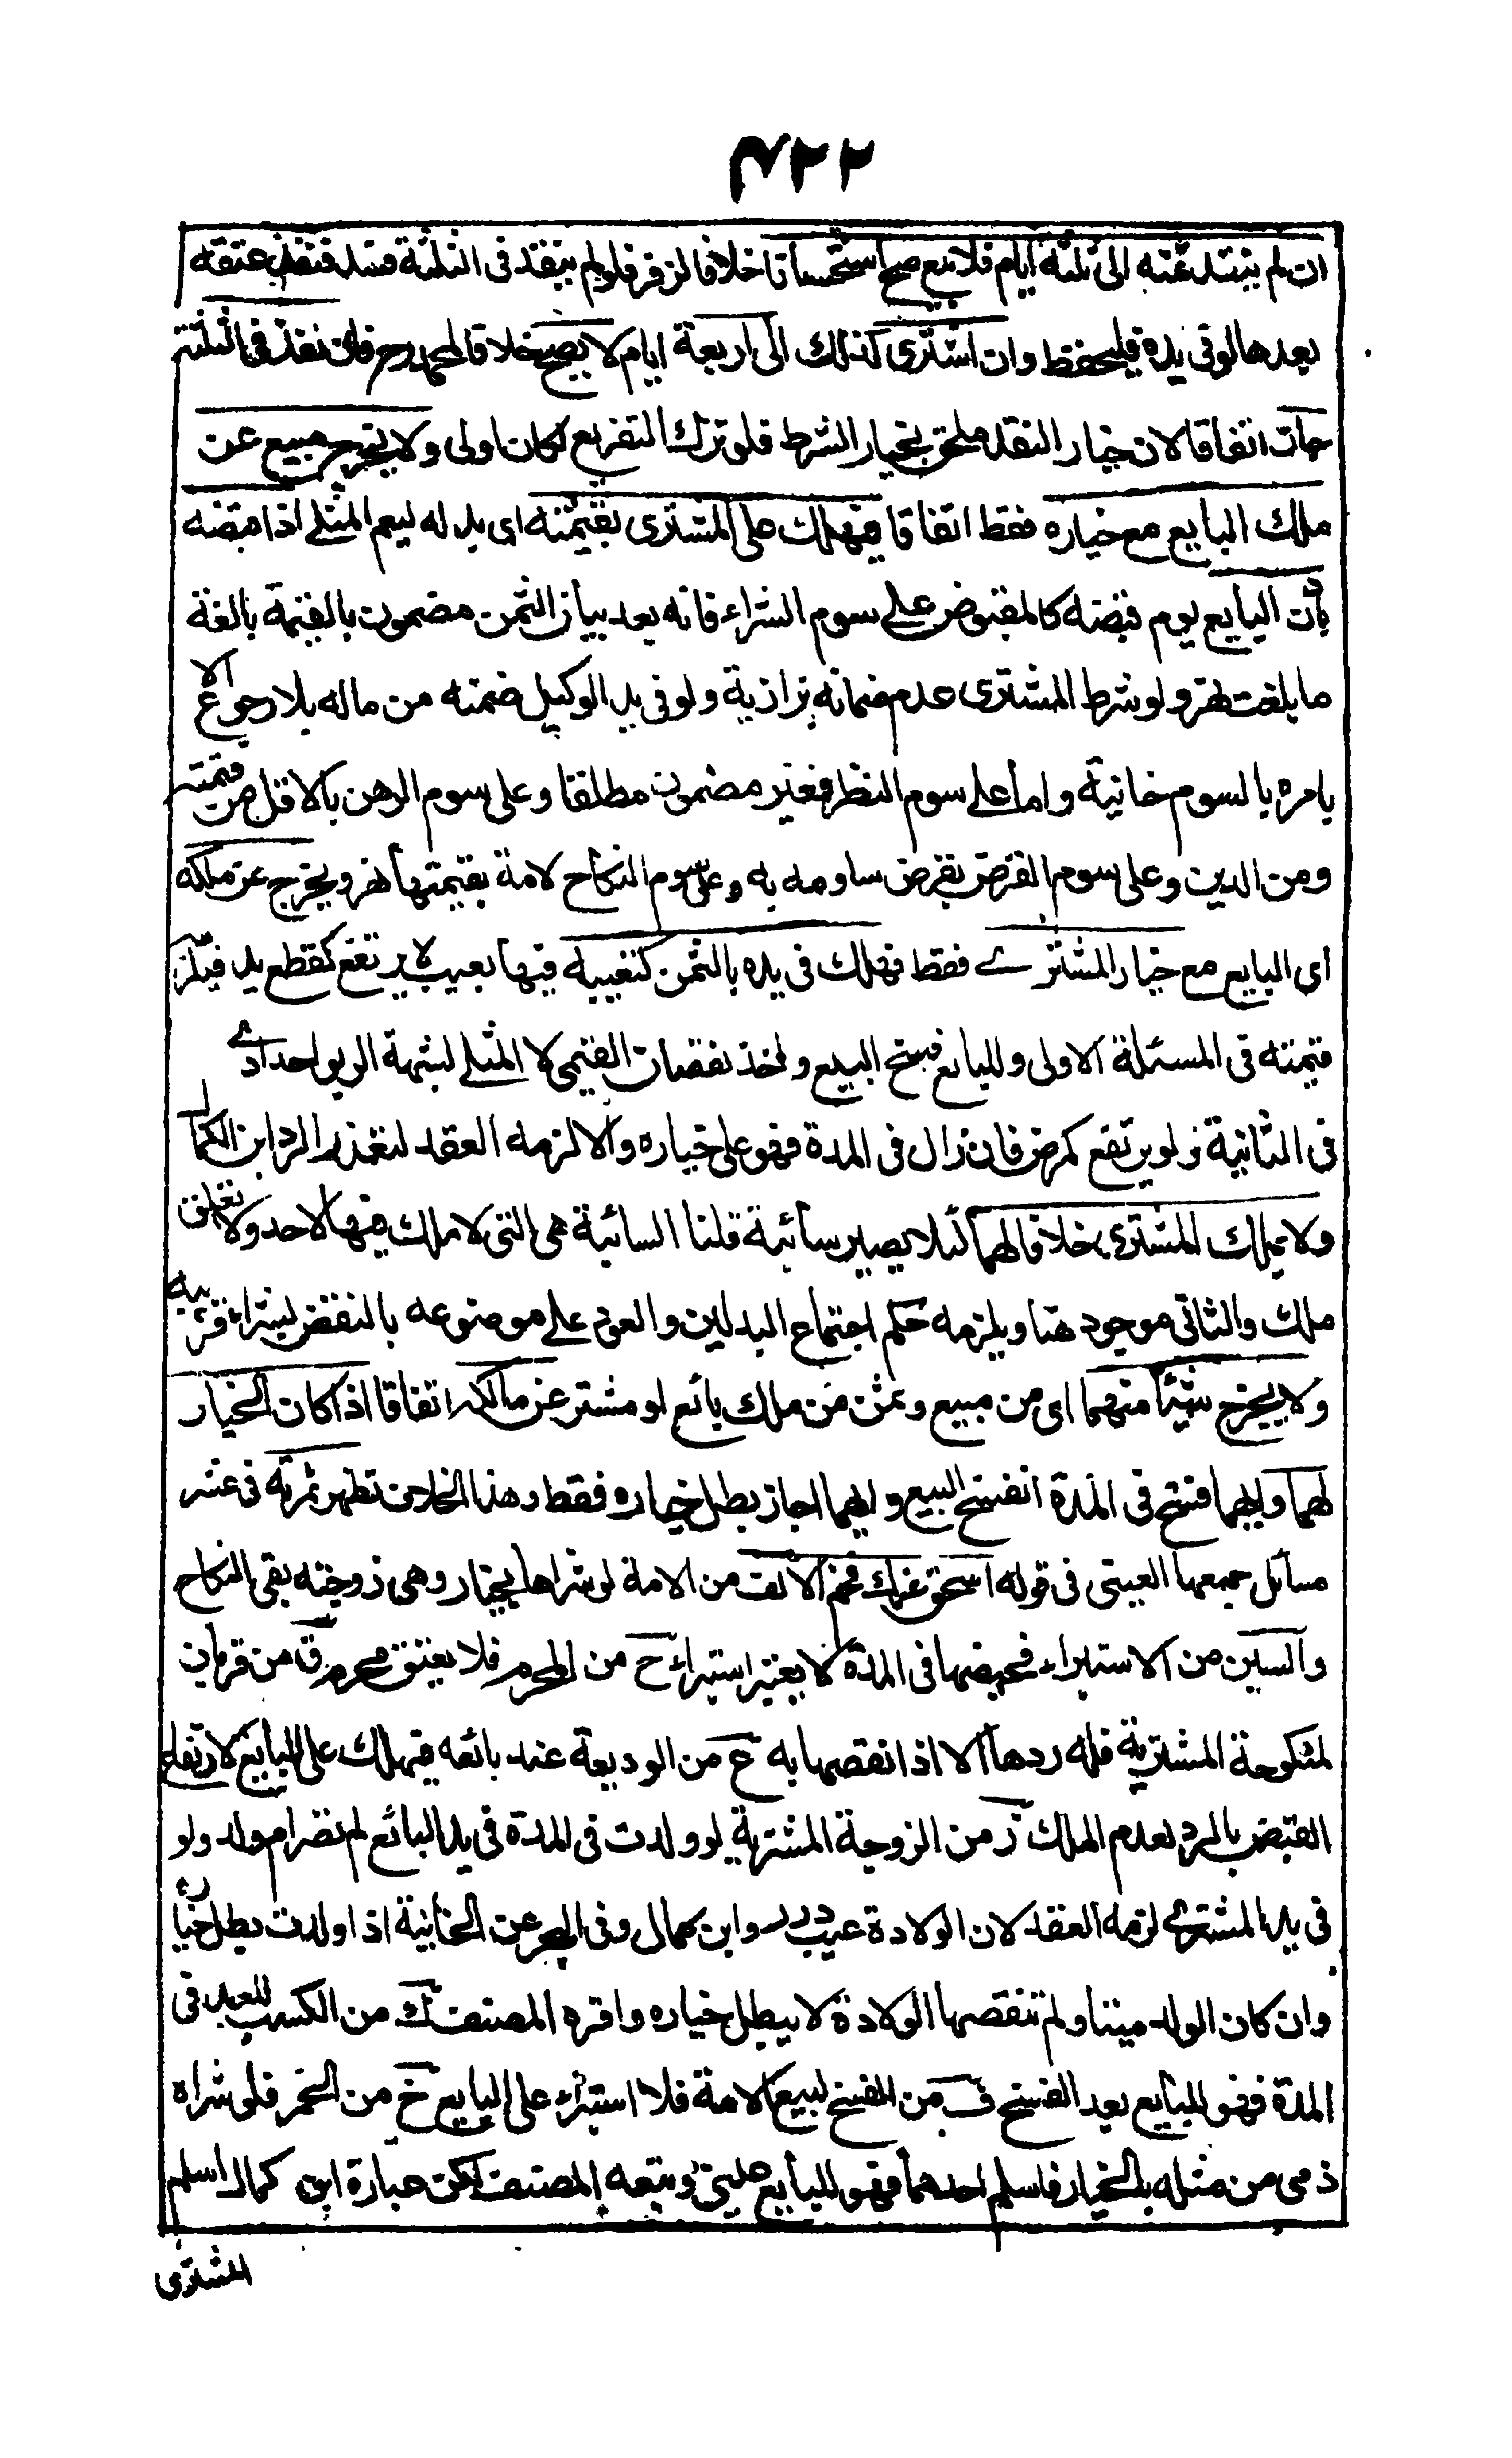 ٤٢٢
ان لم ينقد ثمنه الى ثلثة ايام فلا بيع صح استحسانا خلافا لزفر فلو لم ينقد فى الثلثة فسد فنفذ عتقه
بعدها لو فى يده فليحفظ وان اشترى كذلك الى اربعة ايام لا يصح خلافا لمحمد رح فان نقد فى الثلثة
جاز اتفاقا لان خيار النقد ملحق بخيار الشرط فلو ترك التفريع لكان اولى ولا يخرج مبيع عن
ملك البايع مع خياره فقط اتفاقا فيهلك على المشترى بقيمته اى بدله ليعم المثلى اذا قبضه
باذن البايع يوم قبضه كالمقبوض على سوم الشراء فانه بعد بيان الثمن مضمون بالقيمة بالغة
ما بلغت نهر ولو شرط المشترى عدم ضمانه بزازية ولو فى يد الوكيل ضمنه من ماله بلا رجوع الا
بامره بالسوم خانية واما على سوم النظر فغير مضمون مطلقا وعلى سوم الرهن بالاقل من قيمته
ومن الدين وعلى سوم القرض بقرض ساومه به وعلى سوم النكاح لامة بقيمتها نهر ويخرج عن ملكه
اى البايع مع خيار المشترى فقط فهلك فى يده بالثمن كتعييبه فيها بعيب لا يرتفع كقطع يد فيلزم
قيمته فى المسئلة الاولى وللبايع فسخ البيع واخذ نقصان القيمى لا المثلى لشبهة الربوا حدادى
فى الثانية ولو يرتفع كمرض فان زال فى المدة فهو على خياره والا لزمه العقد لتعذر الرد ابن الكمال
ولا يملك المشترى خلافا لهما لئلا يصير سائبة قلنا السائبة هى التى لا ملك فيها لاحد ولا تعلق
ملك والثانى موجود هنا ويلزمه حكم اجتماع البدلين والعود على موضوعه بالنقض لشراء قريبه
ولا يخرج شيئا منهما اى من مبيع وثمن من ملك بائع او مشتر عن مالكه اتفاقا اذا كان الخيار
لهما وايهما فسخ فى المدة انفسخ البيع وايهما اجاز بطل خياره فقط وهذا الخلاف تظهر ثمرته فى عشر
مسائل جمعها العينى فى قوله اسحق عزك فخم الالف من الامة لو شراها بخيار وهى زوجته بقى النكاح
والسين من الاستبراء فحيضها فى المدة لا يعتبر استبراء ح من المحرم فلا يعتق محرمه ق من قربان
لمنكوحة المشترية فله ردها الا اذا نقصها به ع من الوديعة عند بائعه فيهلك على البايع لارتفاع
القبض بالرد لعدم الملك ز من الزوجة المشتراة لو ولدت فى المدة فى يد البائع لم تصر ام ولد ولو
فى يد المشترى لزمه العقد لان الولادة عيب درر وابن كمال وفى البحر عن الخانية اذا ولدت بطل خياره
وان كان الولد ميتا ولم تنقصها الولادة لا يبطل خياره واقره المصنف ك من الكسب للعبد فى
المدة فهو للبايع بعد الفسخ ف من الفسخ لبيع الامة فلا استبراء على البايع خ من الخمر فلو شراه
ذمى من مثله بالخيار فاسلم احدهما فهو للبايع عينى وتبعه المصنف لكن عبارة ابن كمال اسلم
المشترى